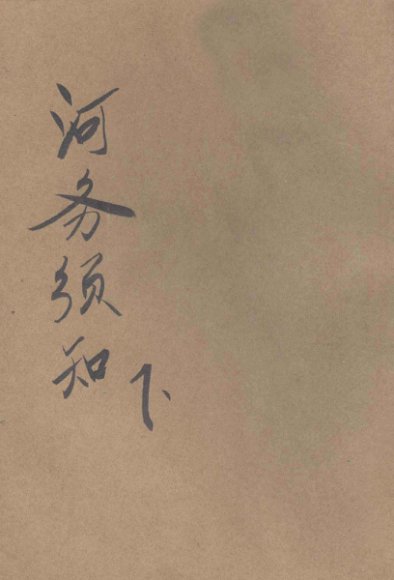 河务须知
下